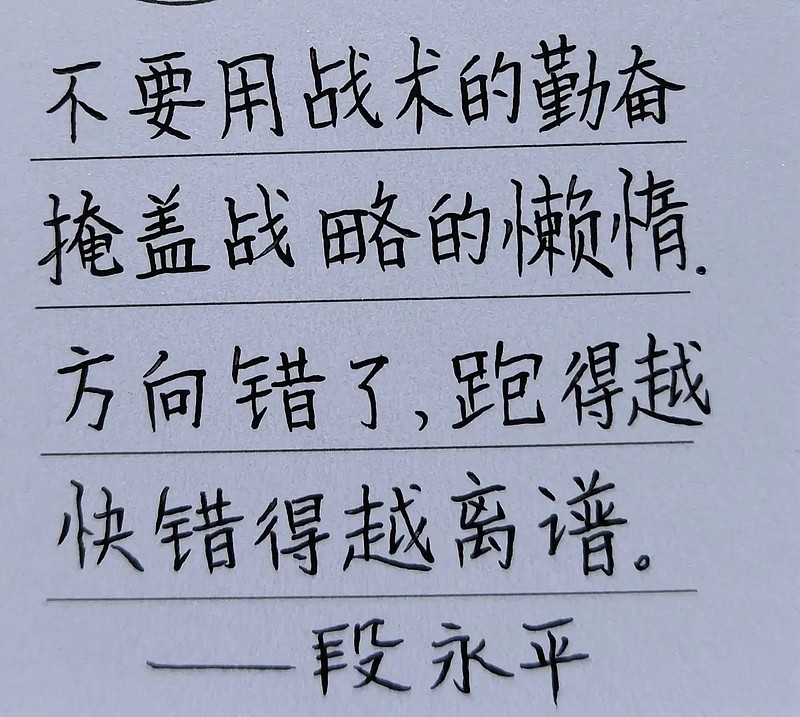 不要用战术的勤奋
掩盖战略的懒惰.
方向错了,跑得越
快错得越离谱。
——段永平